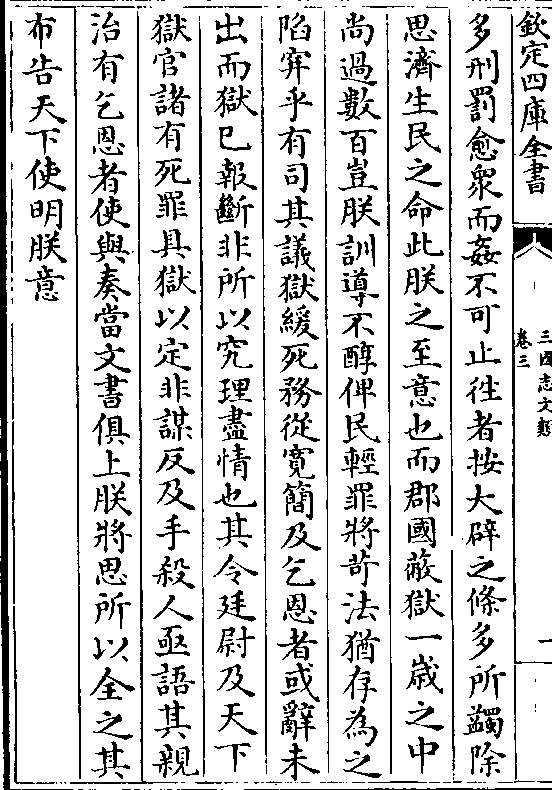 欽定四庫全書
三國志文類
卷三
一
多刑罰愈衆而姦不可止徃者按大辟之條多所蠲除
思濟生民之命此朕之至意也而郡國蔽獄一歳之中
尚過數百豈朕訓導不醇俾民輕罪將苛法猶存為之
陷穽乎有司其議獄緩死務從寛簡及乞恩者或辭未
出而獄已報斷非所以究理盡情也其令廷尉及天下
獄官諸有死罪具獄以定非謀反及手殺人亟語其親
治有乞恩者使與奏當文書俱上朕將思所以全之其
布告天下使明朕意